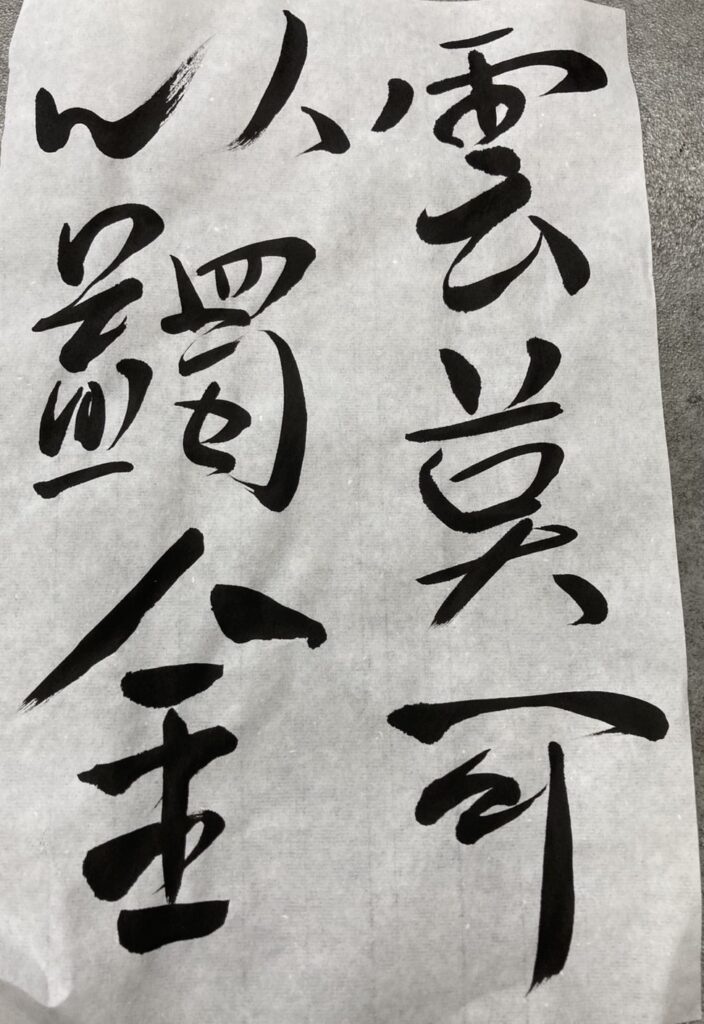 雲莫可
以蠲金